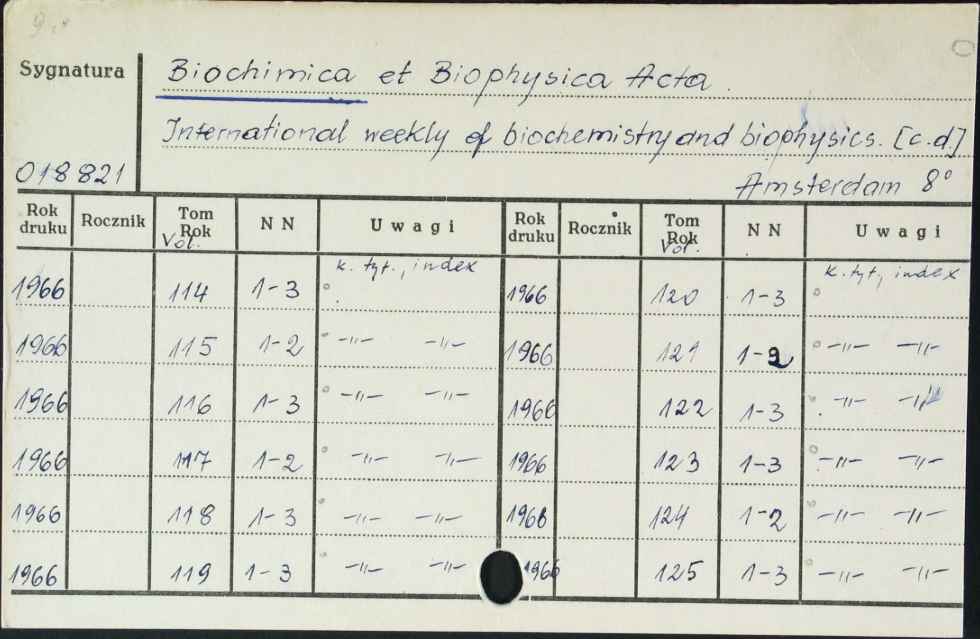 Sygnatura
Biochimica et Biophysica Acta.
International weekly of biochemistry and biophysics. [c.d.]
018821
Amsterdam 8°
Rok druku Rocznik Tom Rok Vol. N N Uwagi Rok druku Rocznik Tom Rok Vol. N N Uwagi
k. tyt., index k. tyt., index
1966 114 1-3 1966 120 1-3
1966 115 1-2 -"- -"- 1966 121 1-2 -"- -"-
1966 116 1-3 -"- -"- 1966 122 1-3 -"- -"-
1966 117 1-2 -"- -"- 1966 123 1-3 -"- -"-
1966 118 1-3 -"- -"- 1966 124 1-2 -"- -"-
1966 119 1-3 -"- -"- 1966 125 1-3 -"- -"-